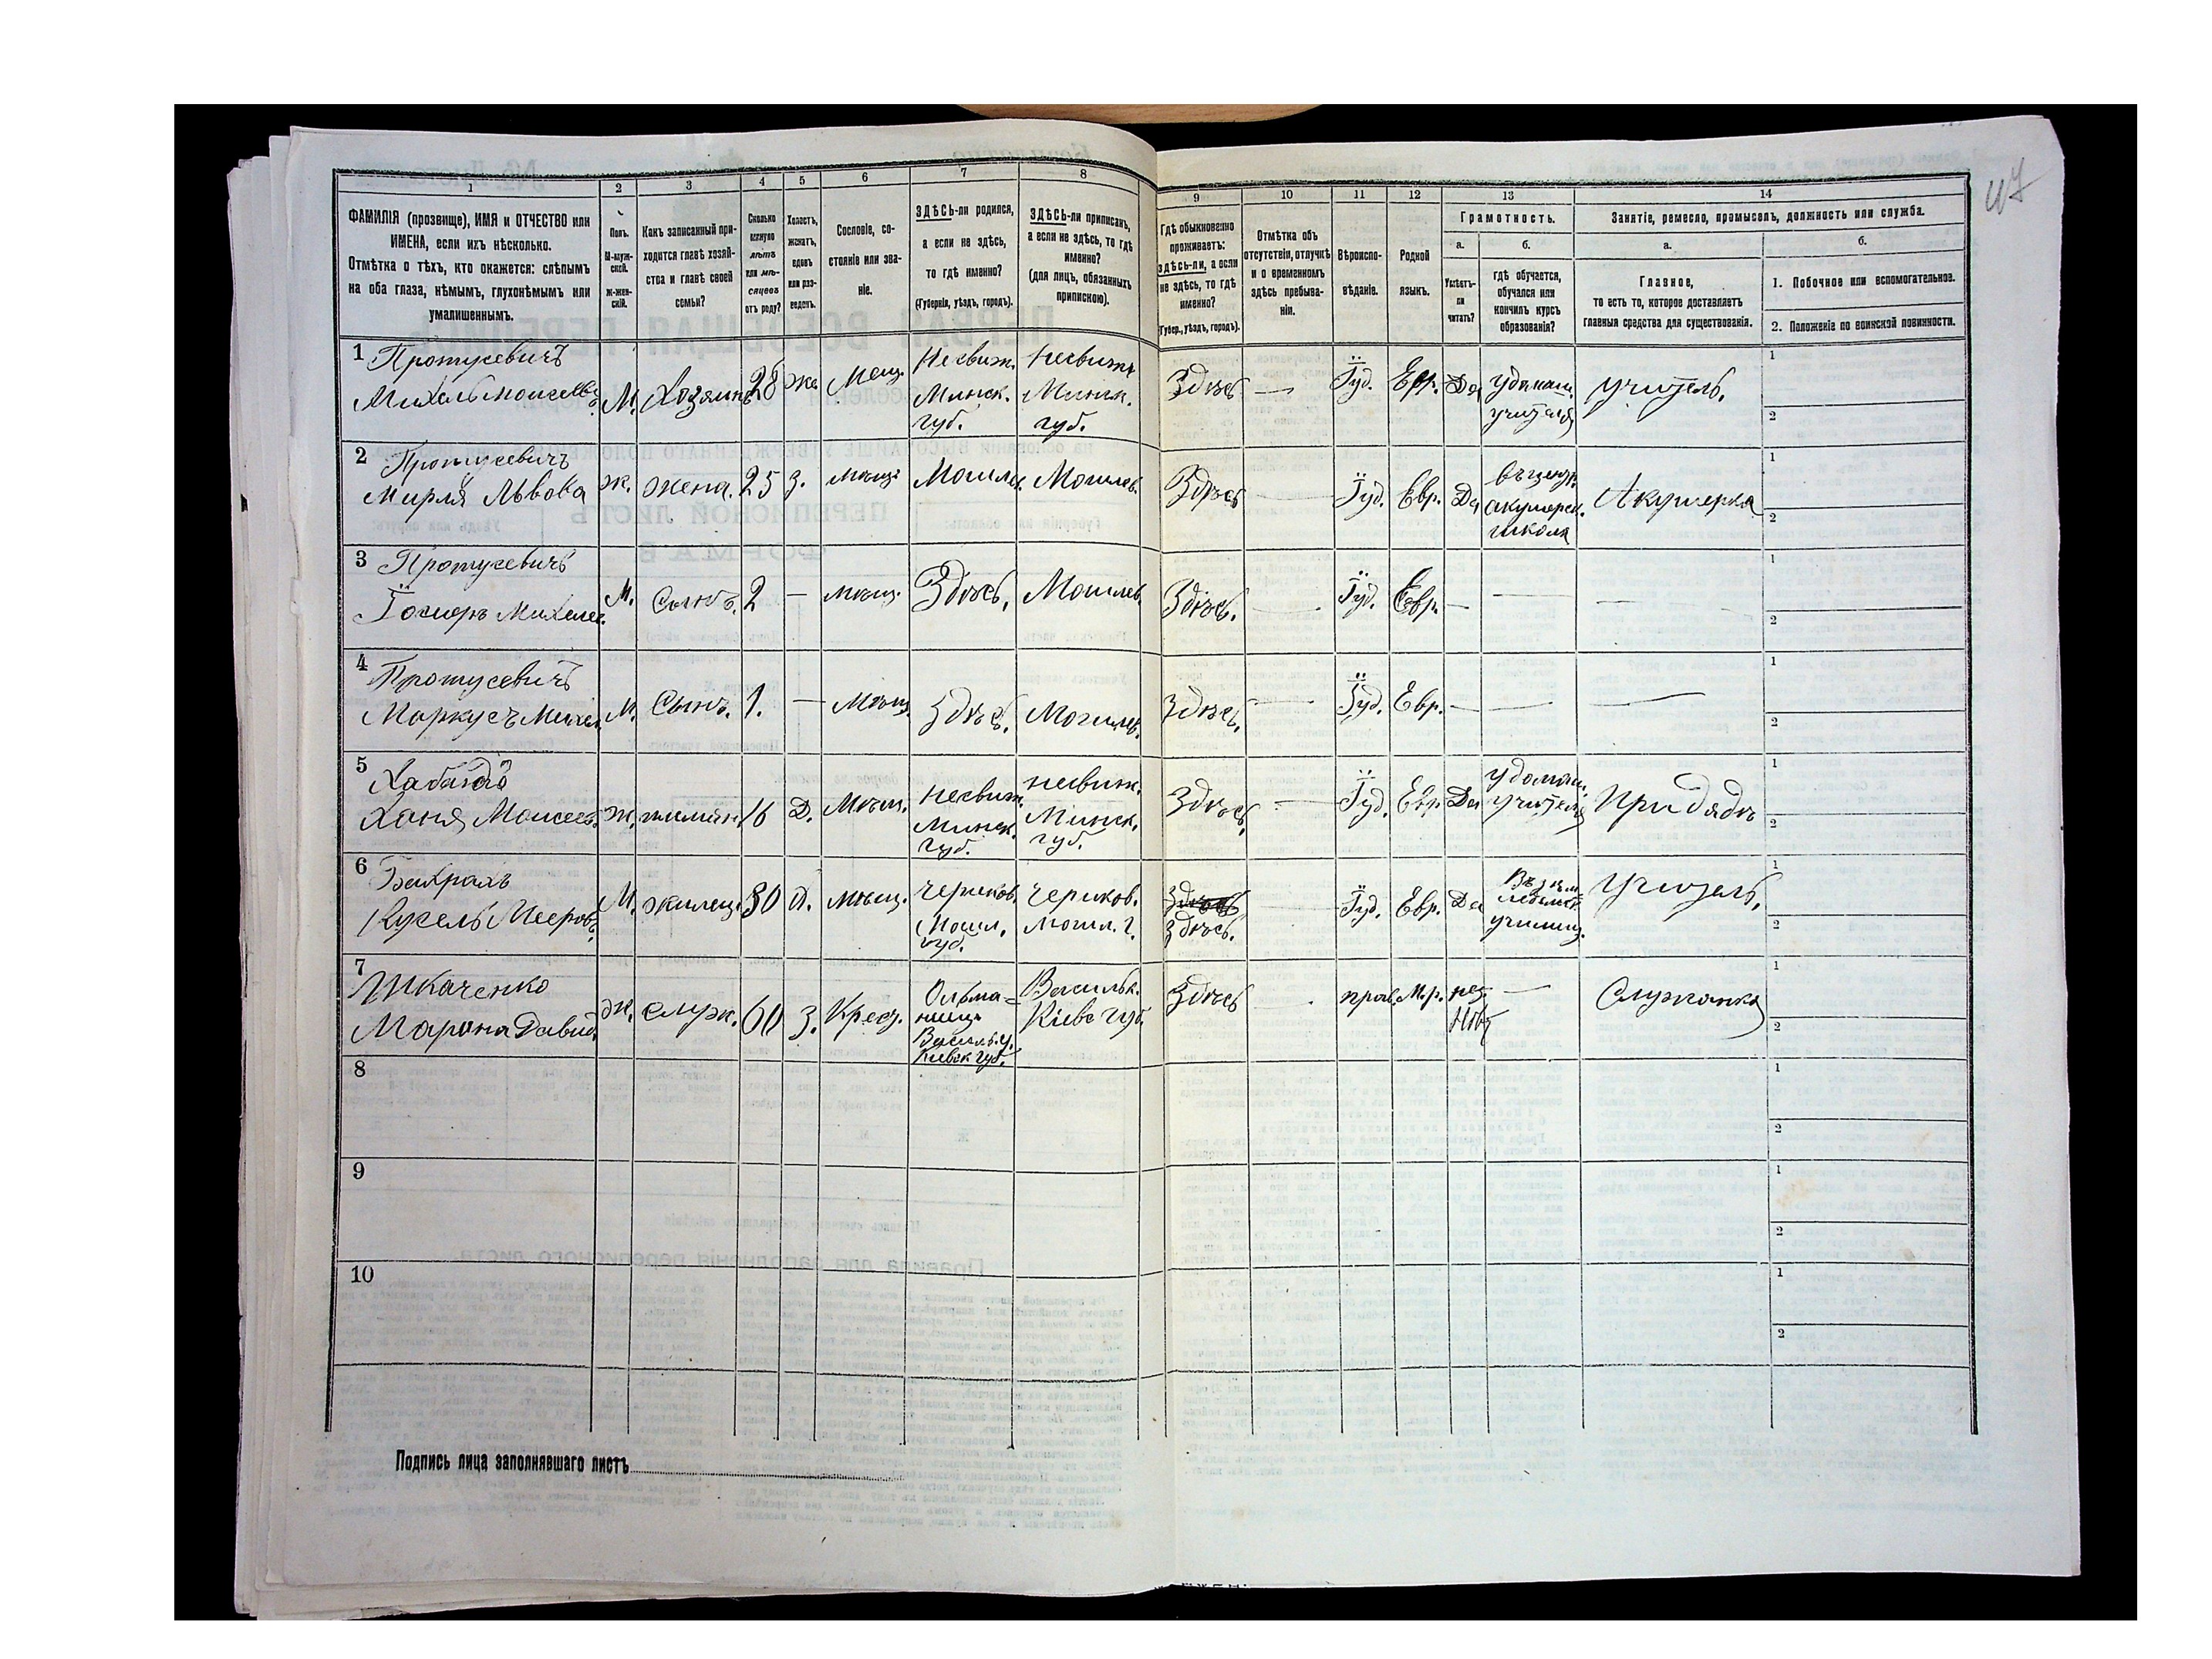 1
2
3
4
5
6
7
8
9
10
11
12
13
14
ФАМИЛІЯ (прозвище), ИМЯ и ОТЧЕСТВО или
ИМЕНА, если ихъ нѣсколько.
Отмѣтка о тѣхъ, кто окажется: слѣпымъ
на оба глаза, нѣмымъ, глухонѣмымъ или
умалишеннымъ.
Полъ.
М-муж-
ской.
Ж-жен-
скій.
Какъ записанный при-
ходится главѣ хозяй-
ства и главѣ своей
семьи?
Сколько
минуло
лѣтъ
или мѣ-
сяцевъ
отъ роду?
Холостъ,
женатъ,
вдовъ
или раз-
веденъ.
Сословіе, со-
стояніе или зва-
ніе.
ЗДѢСЬ-ли родился,
а если не здѣсь,
то гдѣ именно?
(Губернія, уѣздъ, городъ).
ЗДѢСЬ-ли приписанъ,
а если не здѣсь, то гдѣ
именно?
(для лицъ, обязанныхъ
припискою).
Гдѣ обыкновенно
проживаетъ:
здѣсь-ли, а если
не здѣсь, то гдѣ
именно?
(Губер., уѣздъ, городъ).
Отмѣтка объ
отсутствіи, отлучкѣ
и о временномъ
здѣсь пребыва-
ніи.
Вѣроиспо-
вѣданіе.
Родной
языкъ.
Грамотность.
а.
б.
Умѣетъ-
ли
читать?
гдѣ обучается,
обучался или
кончилъ курсъ
образованія?
Занятіе, ремесло, промыселъ, должность или служба.
а.
б.
Главное,
то есть то, которое доставляетъ
главныя средства для существованія.
1. Побочное или вспомогательное.
2. Положеніе по воинской повинности.
1 Протусевичъ
Михель Моисеевъ
М. Хозяинъ 28 же. Мещ.
Несвиж.
Минск.
губ.
Несвиж.
Минск.
губ.
Здѣсь — Іуд. Евр. Да
у домаш.
учителя
учитель.
1
2
2 Протусевичъ
Мирля Львова
ж. жена. 25 з. мѣщ. Могилев. Могилев.
Здѣсь — Іуд. Евр. Да
акушерск.
школа
Акушерка
1
2
3 Протусевичъ
М. Сынъ. 2 — мѣщ. Здѣсь. Могилев.
Здѣсь. — Іуд. Евр. — — —
1
2
4 Протусевичъ
Маркусъ Михел.
М. Сынъ. 1. — Мѣщ. Здѣсь. Могилев.
Здѣсь. — Іуд. Евр. — — —
1
2
5
Ханя Моисеев.
Ж. племян. 16 Д. Мѣщ.
Несвиж.
Минск.
губ.
несвиж.
Минск.
губ.
Здѣсь. — Іуд. Евр. Да
у домаш.
учителя
при дядѣ
1
2
6 Бахрахъ
Кусель Мееров.
М. жилец. 30 мѣщ.
Чериков.
Могил.
губ.
Чериков.
Могил. г.
Здѣсь
здѣсь.
— Іуд. Евр. Да
училищ.
Учитель.
1
2
7 Ткаченко
Марина Давид.
ж. служ. 60 З. Крест.
Ольша-
ница
Васильк. у.
Киевск. губ.
Васильк.
Кіевс. губ.
Здѣсь — прав. М.р.
Нѣт
—
Служанка
1
2
8
1
2
9
1
2
10
1
2
Подпись лица заполнявшаго листъ